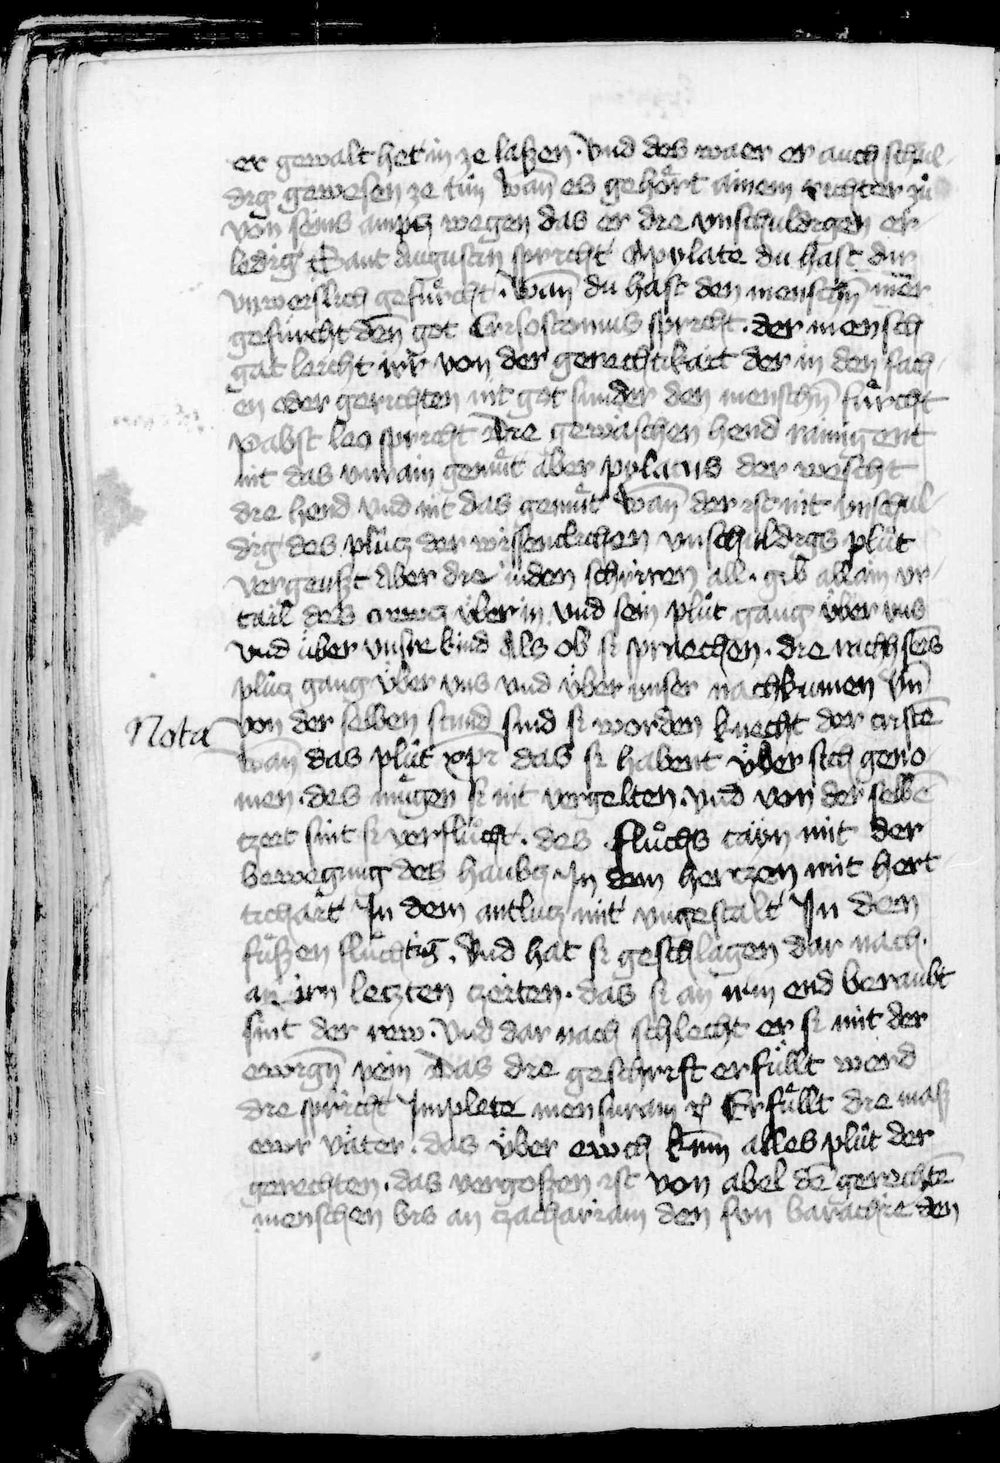 er gewalt het in ze laßen · Vnd des waer er auch schul-
dig gewesen ze tün Wan̄ es gehoͤrt ainem richter zuͦ
von seins ampt̜ wegen das er die vnschuldigen er-
ledig Sant Augustin spricht O pylate du hast dir
vnweislich gefuͤrcht · Wan̄ du hast den mensch̄n mer
gefürcht den̄ got Crisostomus spricht · der mensch
gat leicht irr von der gerechtikait der in den sach-
en oder gerichten nit got sunder den mensch̄n fuͤrcht
Pabst leo spricht Die gewaschen hend rainigent
nit das vnrain gemuͤt aber pylatus der wescht
die hend vnd nit das gemuͤt Wan̄ der ist nit vnschul-
dig des pluͦtz der wissenclichen vnschuldigs pluͦt
vergeußt Aber die iuden schrirren all · gib allain vr-
tail des crewtz über in Vnd sein pluͦt gang über vns
vnd über vnsre kind Als ob si spraechen · die rach seis
pluͦtz gang über vns vnd über vnser nachkumen Vn̄
Nota von der selben stund sind si worden knecht der cristē
Wan̄ das pluͦt xp̄i das si habent über sich geno-
men · des mügen si nit vergelten · vnd von der selbē
tzeit sint si verfluͦcht · des fluͦchs cayn mit der
bewegung des haubtz · In dem hertzen mit hert
tichait In dem antlutz mit vngestalt In den
fuͤßen fluͤchtig · Vnd hat si geschlagen dar nach ·
an irn letzten tzeiten · das si an irm end beraubt
sint der rew · Vnd dar nach schlecht er si mit der
ewiḡn pein Das die geschrift erfüllt werd
die spricht Implete mensuram &c Erfüllt die maß
ewr väter · das über ewch kum alles pluͦt der
gerechten · das vergoßen ist von abel dē gerechtē
menschen bis an tzachariam den sun barachie den